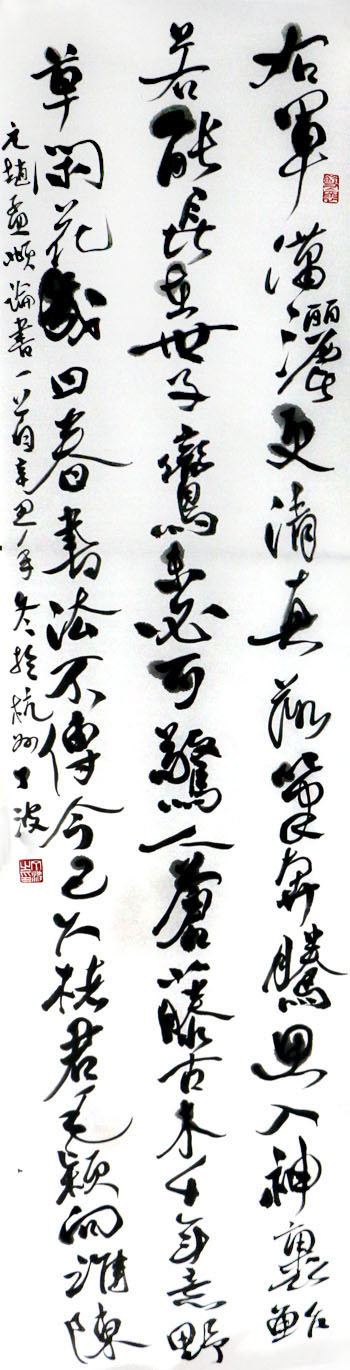 右軍瀟灑更清真落筆奔騰思入神裹鮓
若能長世子鸞未必可驚人蒼藤古木千年意野
草閑花幾日春書法不傳今已久楮君毛穎向誰陳
元趙孟頫論書一首辛丑年冬於杭州丁波